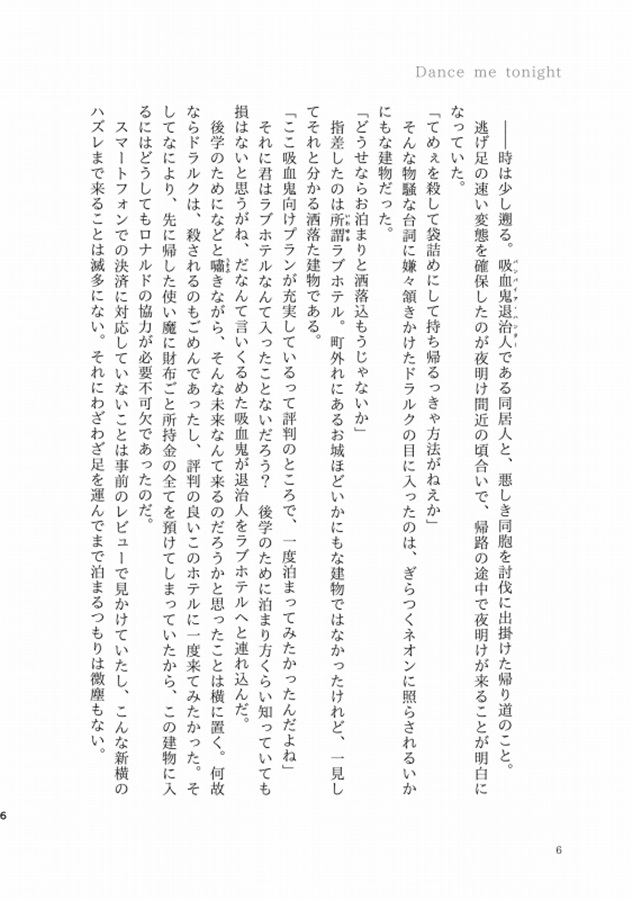 Dance me tonight
――時は少し遡る。吸血鬼退治人である同居人と、悪しき同胞を討伐に出掛けた帰り道のこと。
バンパイヤ・ハンター
逃げ足の速い変態を確保したのが夜明け間近の頃合いで、帰路の途中で夜明けが来ることが明白に
なっていた。
「てめぇを殺して袋詰めにして持ち帰るっきゃ方法がねえか」
そんな物騒な台詞に嫌々頷きかけたドラルクの目に入ったのは、ぎらつくネオンに照らされるいか
にもな建物だった。
「どうせならお泊まりと洒落込もうじゃないか」
指差したのは所謂ラブホテル。町外れにあるお城ほどいかにもな建物ではなかったけれど、一見し
いわゆる
てそれと分かる洒落た建物である。
「ここ吸血鬼向けプランが充実しているって評判のところで、一度泊まってみたかったんだよね」
それに君はラブホテルなんて入ったことないだろう？　後学のために泊まり方くらい知っていても
損はないと思うがね、だなんて言いくるめた吸血鬼が退治人をラブホテルへと連れ込んだ。
後学のためになどと嘯きながら、そんな未来なんて来るのだろうかと思ったことは横に置く。何故
うそぶ
ならドラルクは、殺されるのもごめんであったし、評判の良いこのホテルに一度来てみたかった。そ
してなにより、先に帰した使い魔に財布ごと所持金の全てを預けてしまっていたから、この建物に入
るにはどうしてもロナルドの協力が必要不可欠であったのだ。
スマートフォンでの決済に対応していないことは事前のレビューで見かけていたし、こんな新横の
ハズレまで来ることは滅多にない。それにわざわざ足を運んでまで泊まるつもりは微塵もない。
6
6